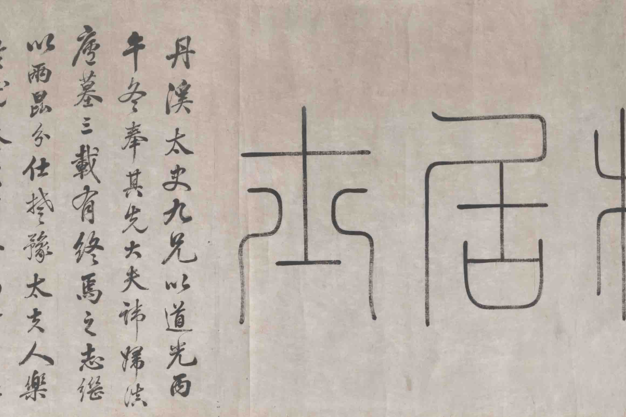 居
丹溪太史九兄以道光丙
午冬奉其先大夫諱歸滇
廬墓三載有終焉之志繼
以兩昆分仕楚豫太夫人樂